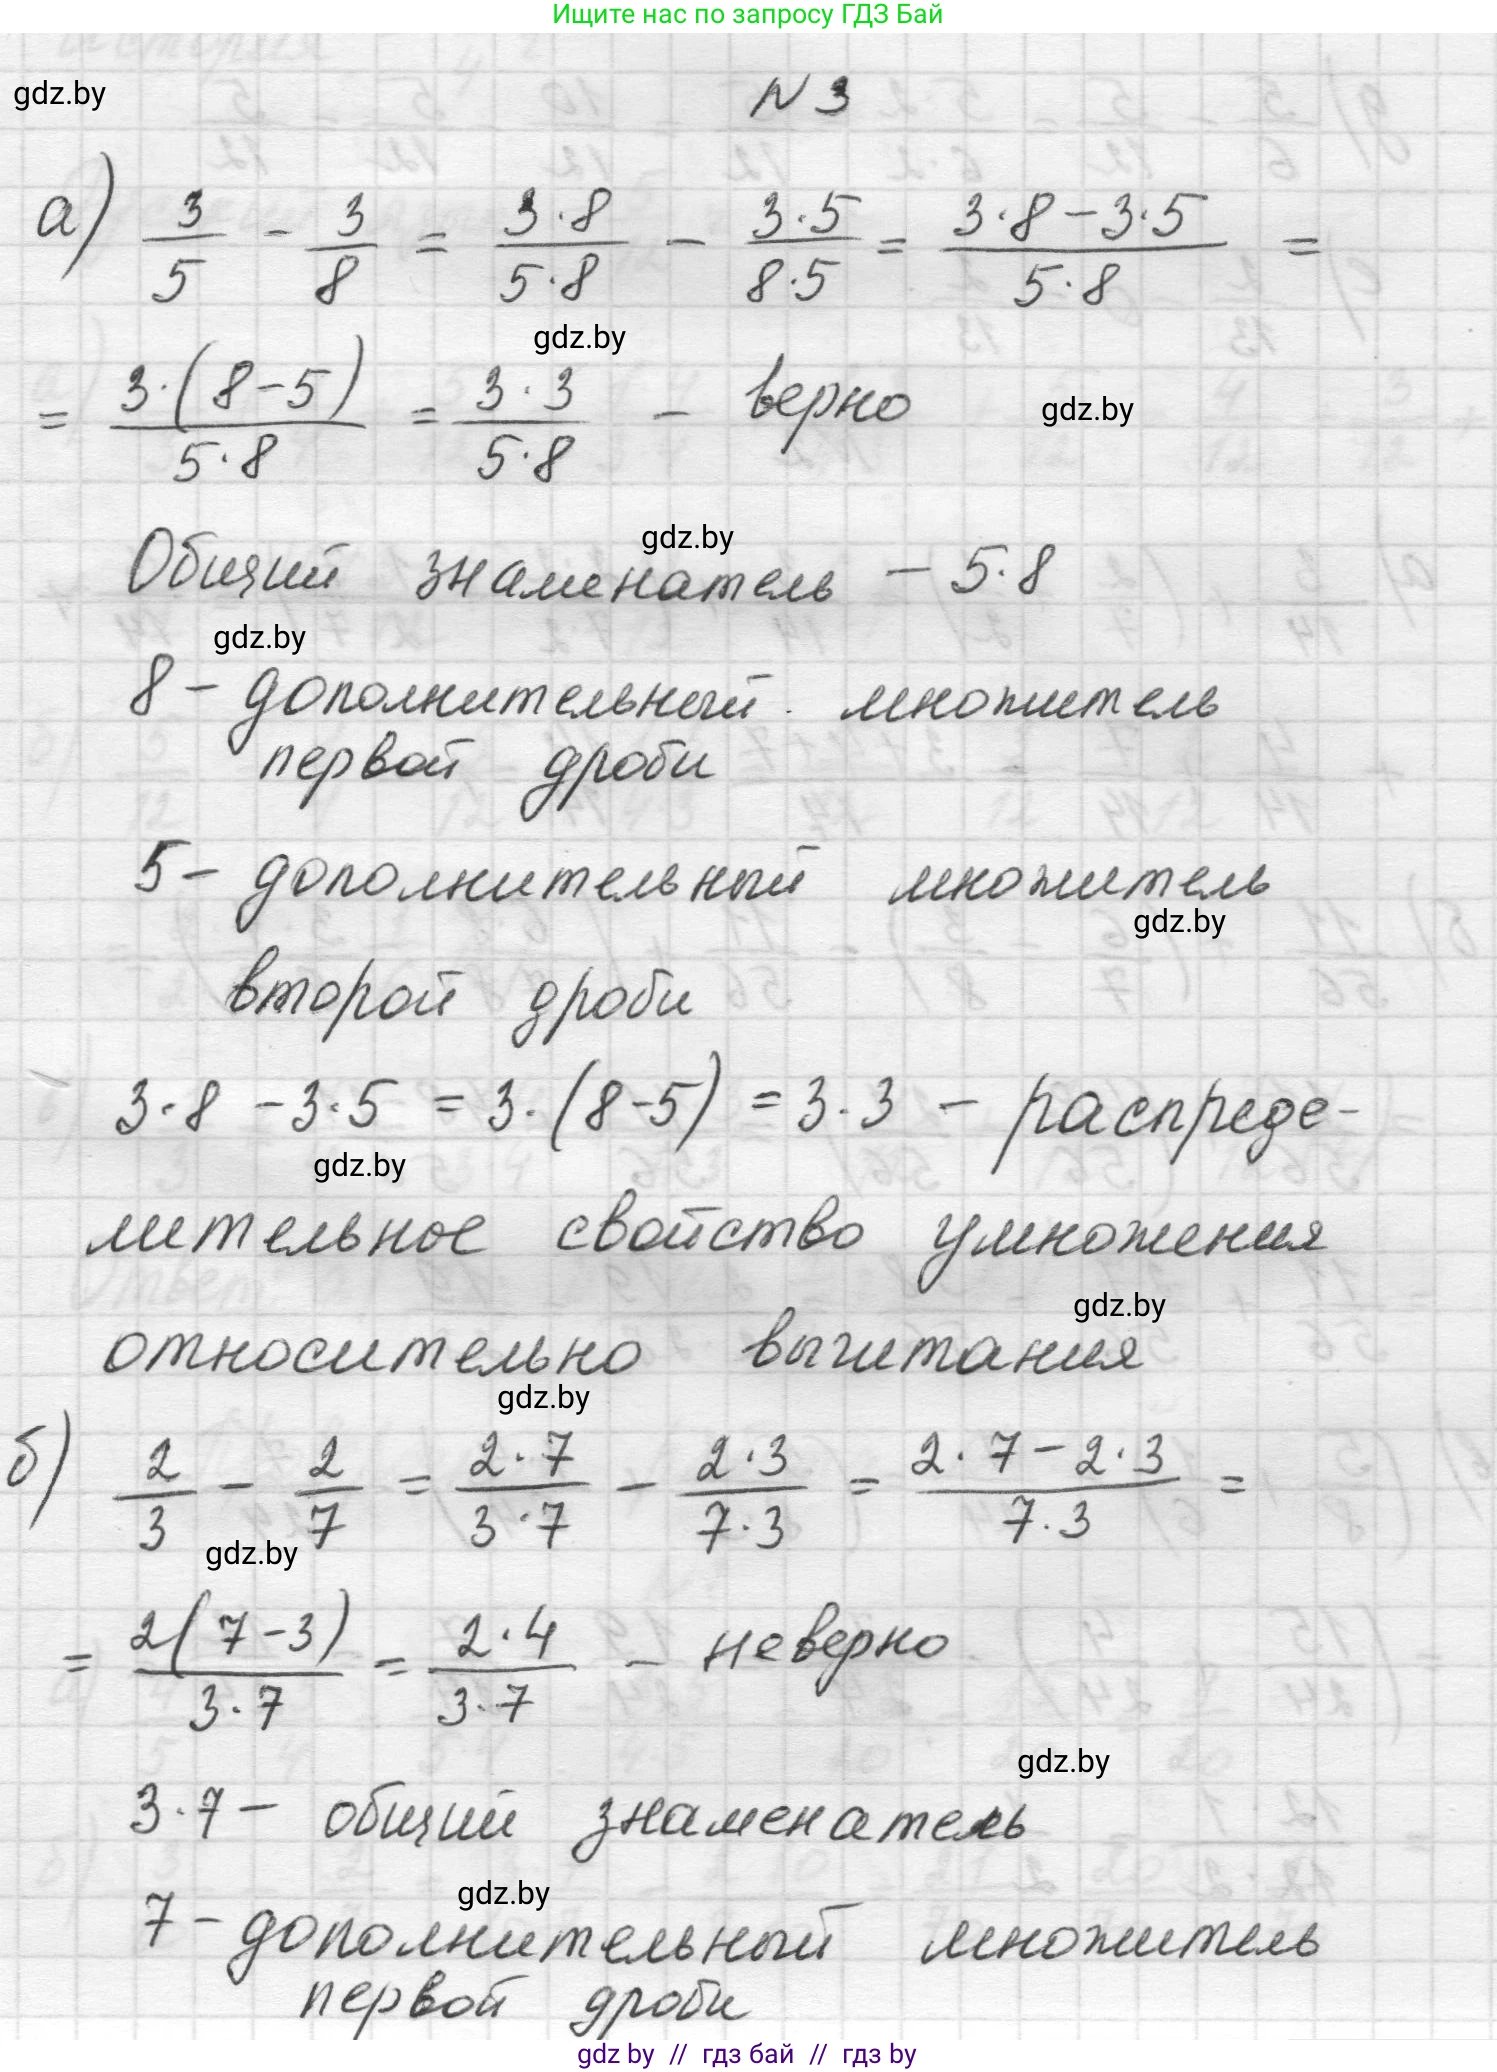 Ищите нас по запросу ГДЗ Бай
gdz.by
N 3
а) 3/5 - 3/8 = 3·8/5·8 - 3·5/8·5 = 3·8-3·5/5·8 =
gdz.by
= 3·(8-5)/5·8 = 3·3/5·8 - верно
gdz.by
gdz.by
Общий знаменатель - 5·8
gdz.by
8 - дополнительный множитель
первой дроби
5 - дополнительный множитель
gdz.by
второй дроби
3·8 - 3·5 = 3·(8-5) = 3·3 - распреде-
gdz.by
лительное свойство умножения
gdz.by
относительно вычитания
gdz.by
б) 2/3 - 2/7 = 2·7/3·7 - 2·3/7·3 = 2·7-2·3/7·3 =
gdz.by
= 2(7-3)/3·7 = 2·4/3·7 - неверно
gdz.by
3·7 - общий знаменатель
gdz.by
7 - дополнительный множитель
первой дроби
gdz by // гдз бай // гдз by